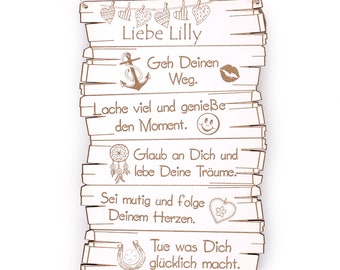 Liebe Lilly
Geh Deinen
Weg.
Lache viel und genieße
den Moment.
Glaub an Dich und
lebe Deine Träume.
Sei mutig und folge
Deinem Herzen.
Tue was Dich
glücklich macht.